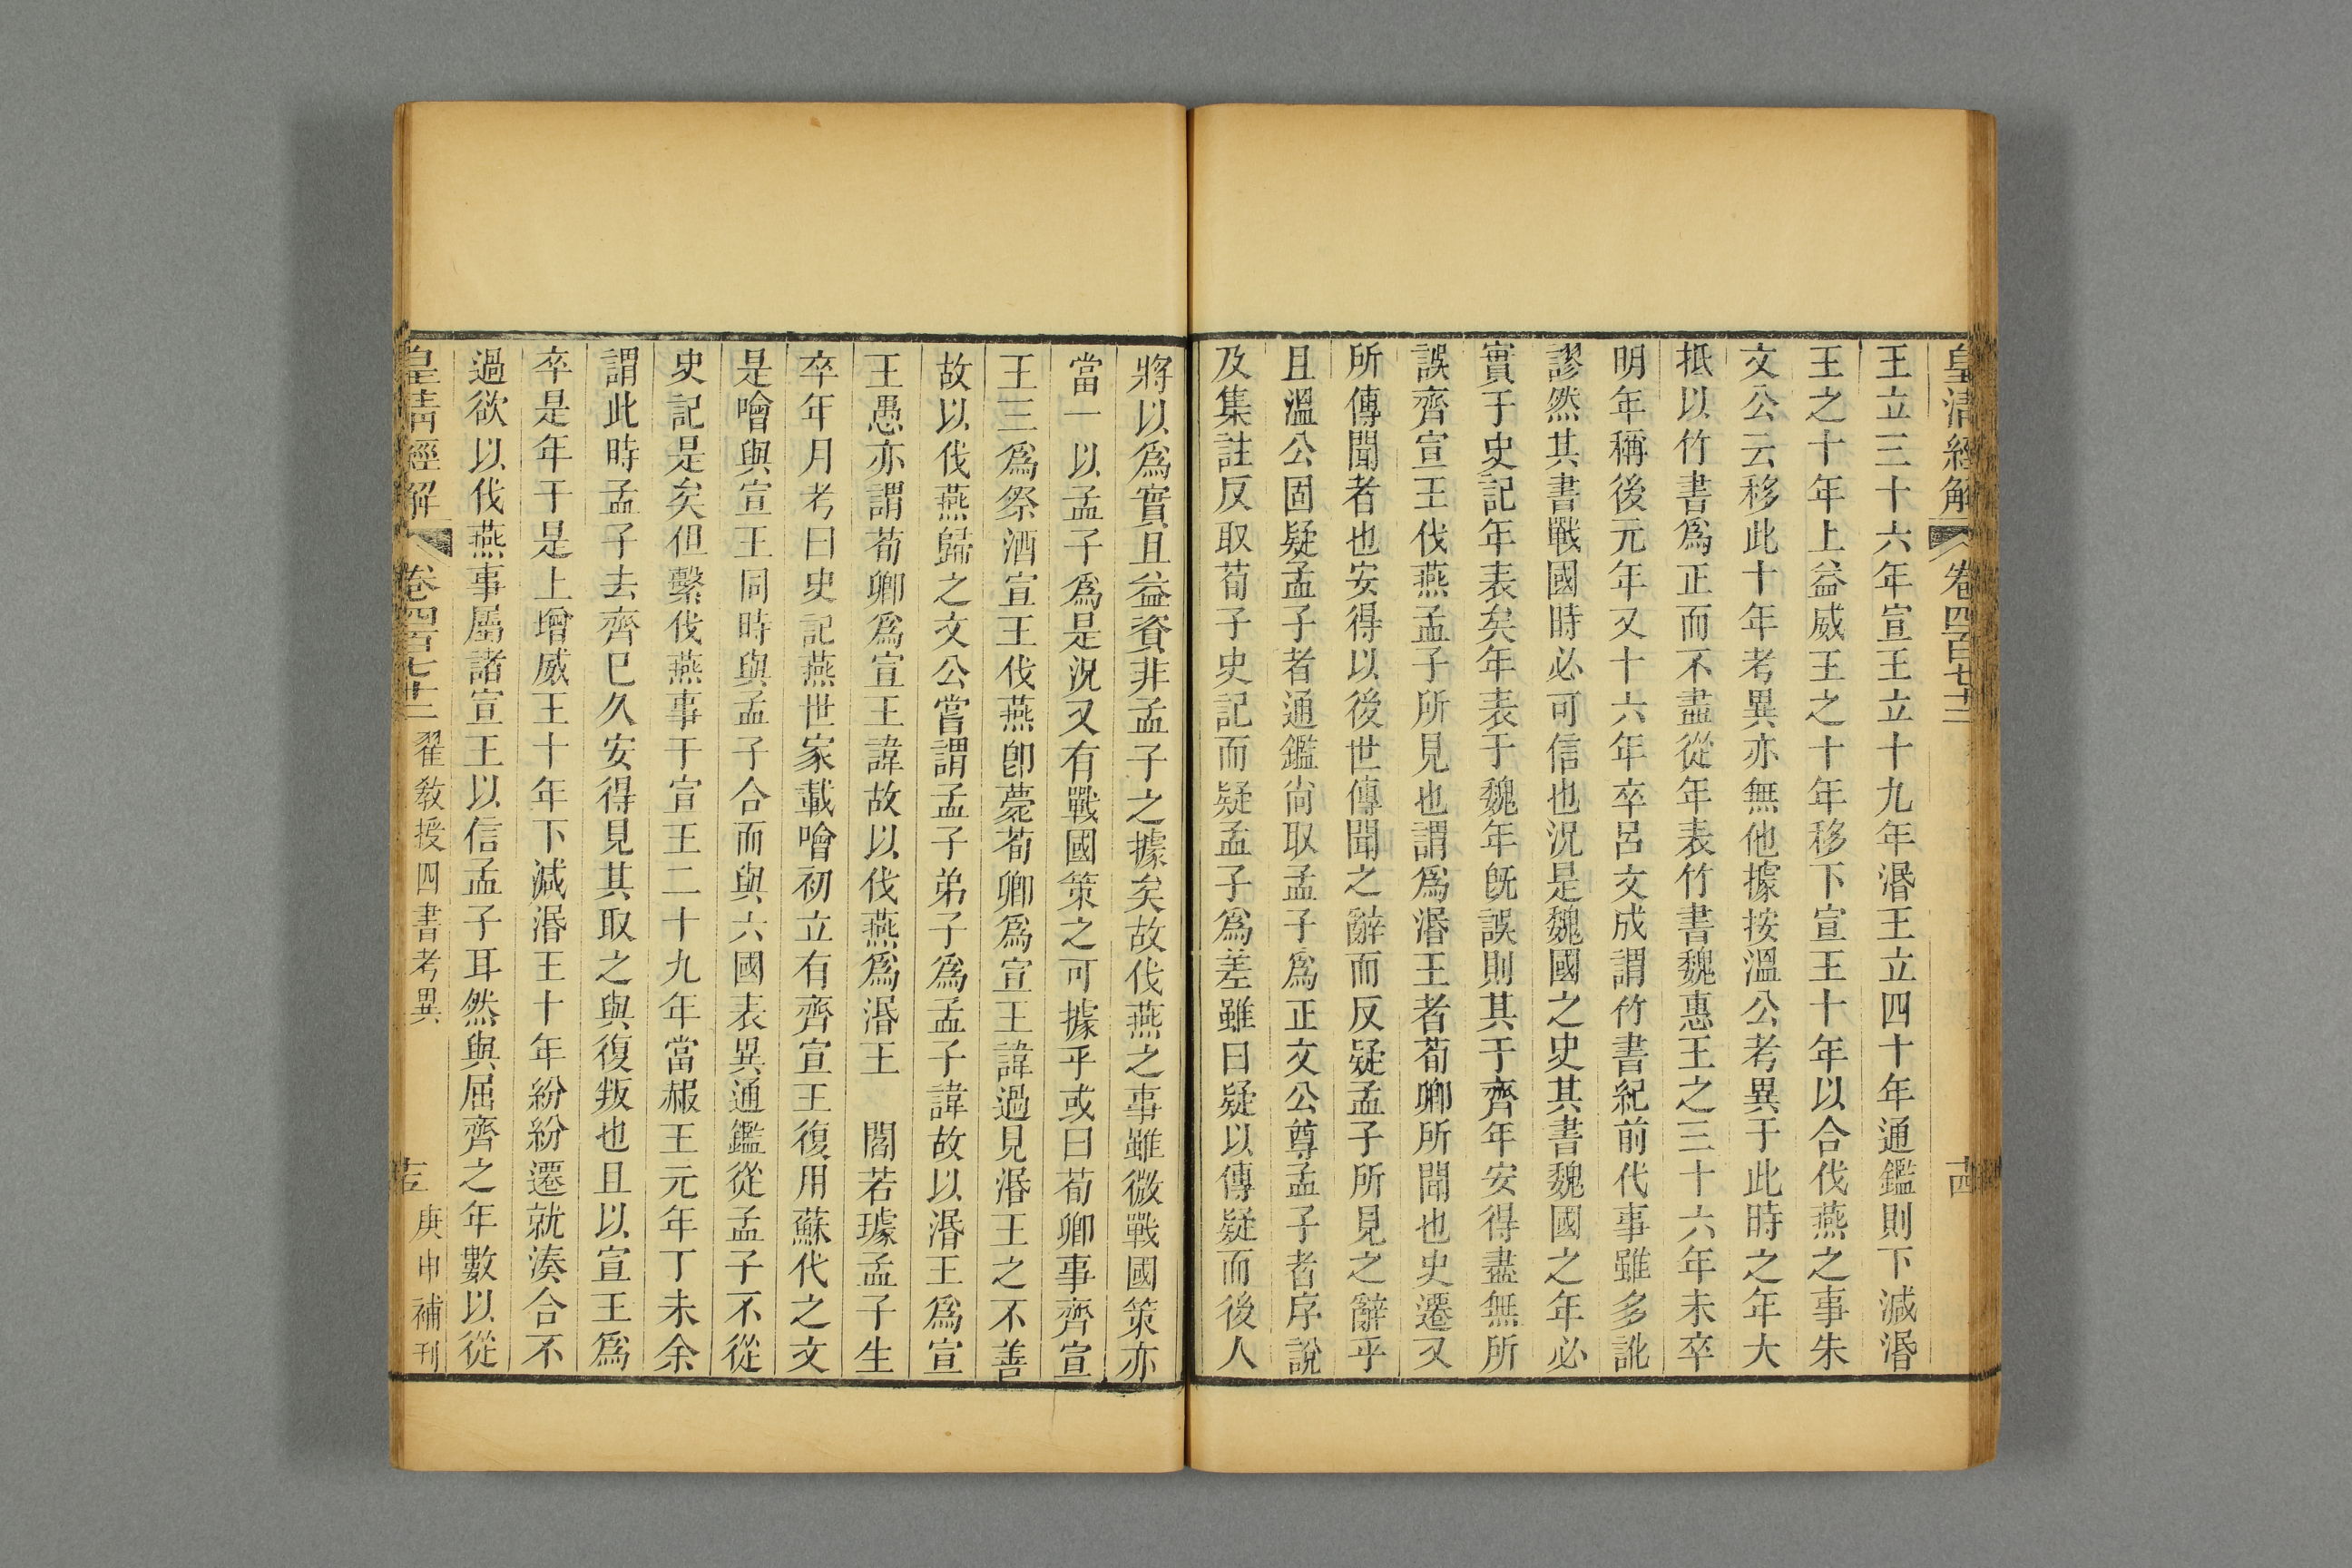 皇清經解 卷四百七十二 十四
王立三十六年宣王立十九年湣王立四十年通鑑則下減湣
王之十年上益威王之十年移下宣王十年以合伐燕之事朱
文公云移此十年考異亦無他據按溫公考異于此時之年大
抵以竹書爲正而不盡從年表竹書魏惠王之三十六年未卒
明年稱後元年又十六年卒呂文成謂竹書紀前代事雖多訛
謬然其書戰國時必可信也況是魏國之史其書魏國之年必
實于史記年表矣年表于魏年旣誤則其于齊年安得盡無所
誤齊宣王伐燕孟子所見也謂爲湣王者荀卿所聞也史遷又
所傳聞者也安得以後世傳聞之辭而反疑孟子所見之辭乎
且溫公固疑孟子者通鑑尙取孟子爲正文公尊孟子者序說
及集註反取荀子史記而疑孟子爲差雖曰疑以傳疑而後人
將以爲實且益資非孟子之據矣故伐燕之事雖微戰國策亦
當一以孟子爲是況又有戰國策之可據乎或曰荀卿事齊宣
王三爲祭酒宣王伐燕卽薨荀卿爲宣王諱過見湣王之不善
故以伐燕歸之文公嘗謂孟子弟子爲孟子諱故以湣王爲宣
王愚亦謂荀卿爲宣王諱故以伐燕爲湣王　閻若璩孟子生
卒年月考曰史記燕世家載噲初立有齊宣王復用蘇代之文
是噲與宣王同時與孟子合而與六國表異通鑑從孟子不從
史記是矣但繫伐燕事于宣王二十九年當赧王元年丁未余
謂此時孟子去齊已久安得見其取之與復叛也且以宣王爲
卒是年于是上增威王十年下減湣王十年紛紛遷就湊合不
過欲以伐燕事屬諸宣王以信孟子耳然與屈齊之年數以從
皇清經解 卷四百七十二 翟敎授四書考異 十五 庚申補刊